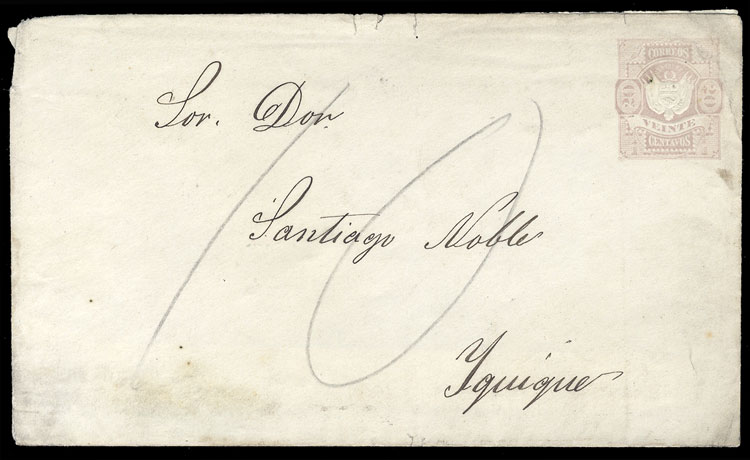 CORREOS
20 20
VEINTE
CENTAVOS
Sor. Don
Santiago Noble
Yquique
10